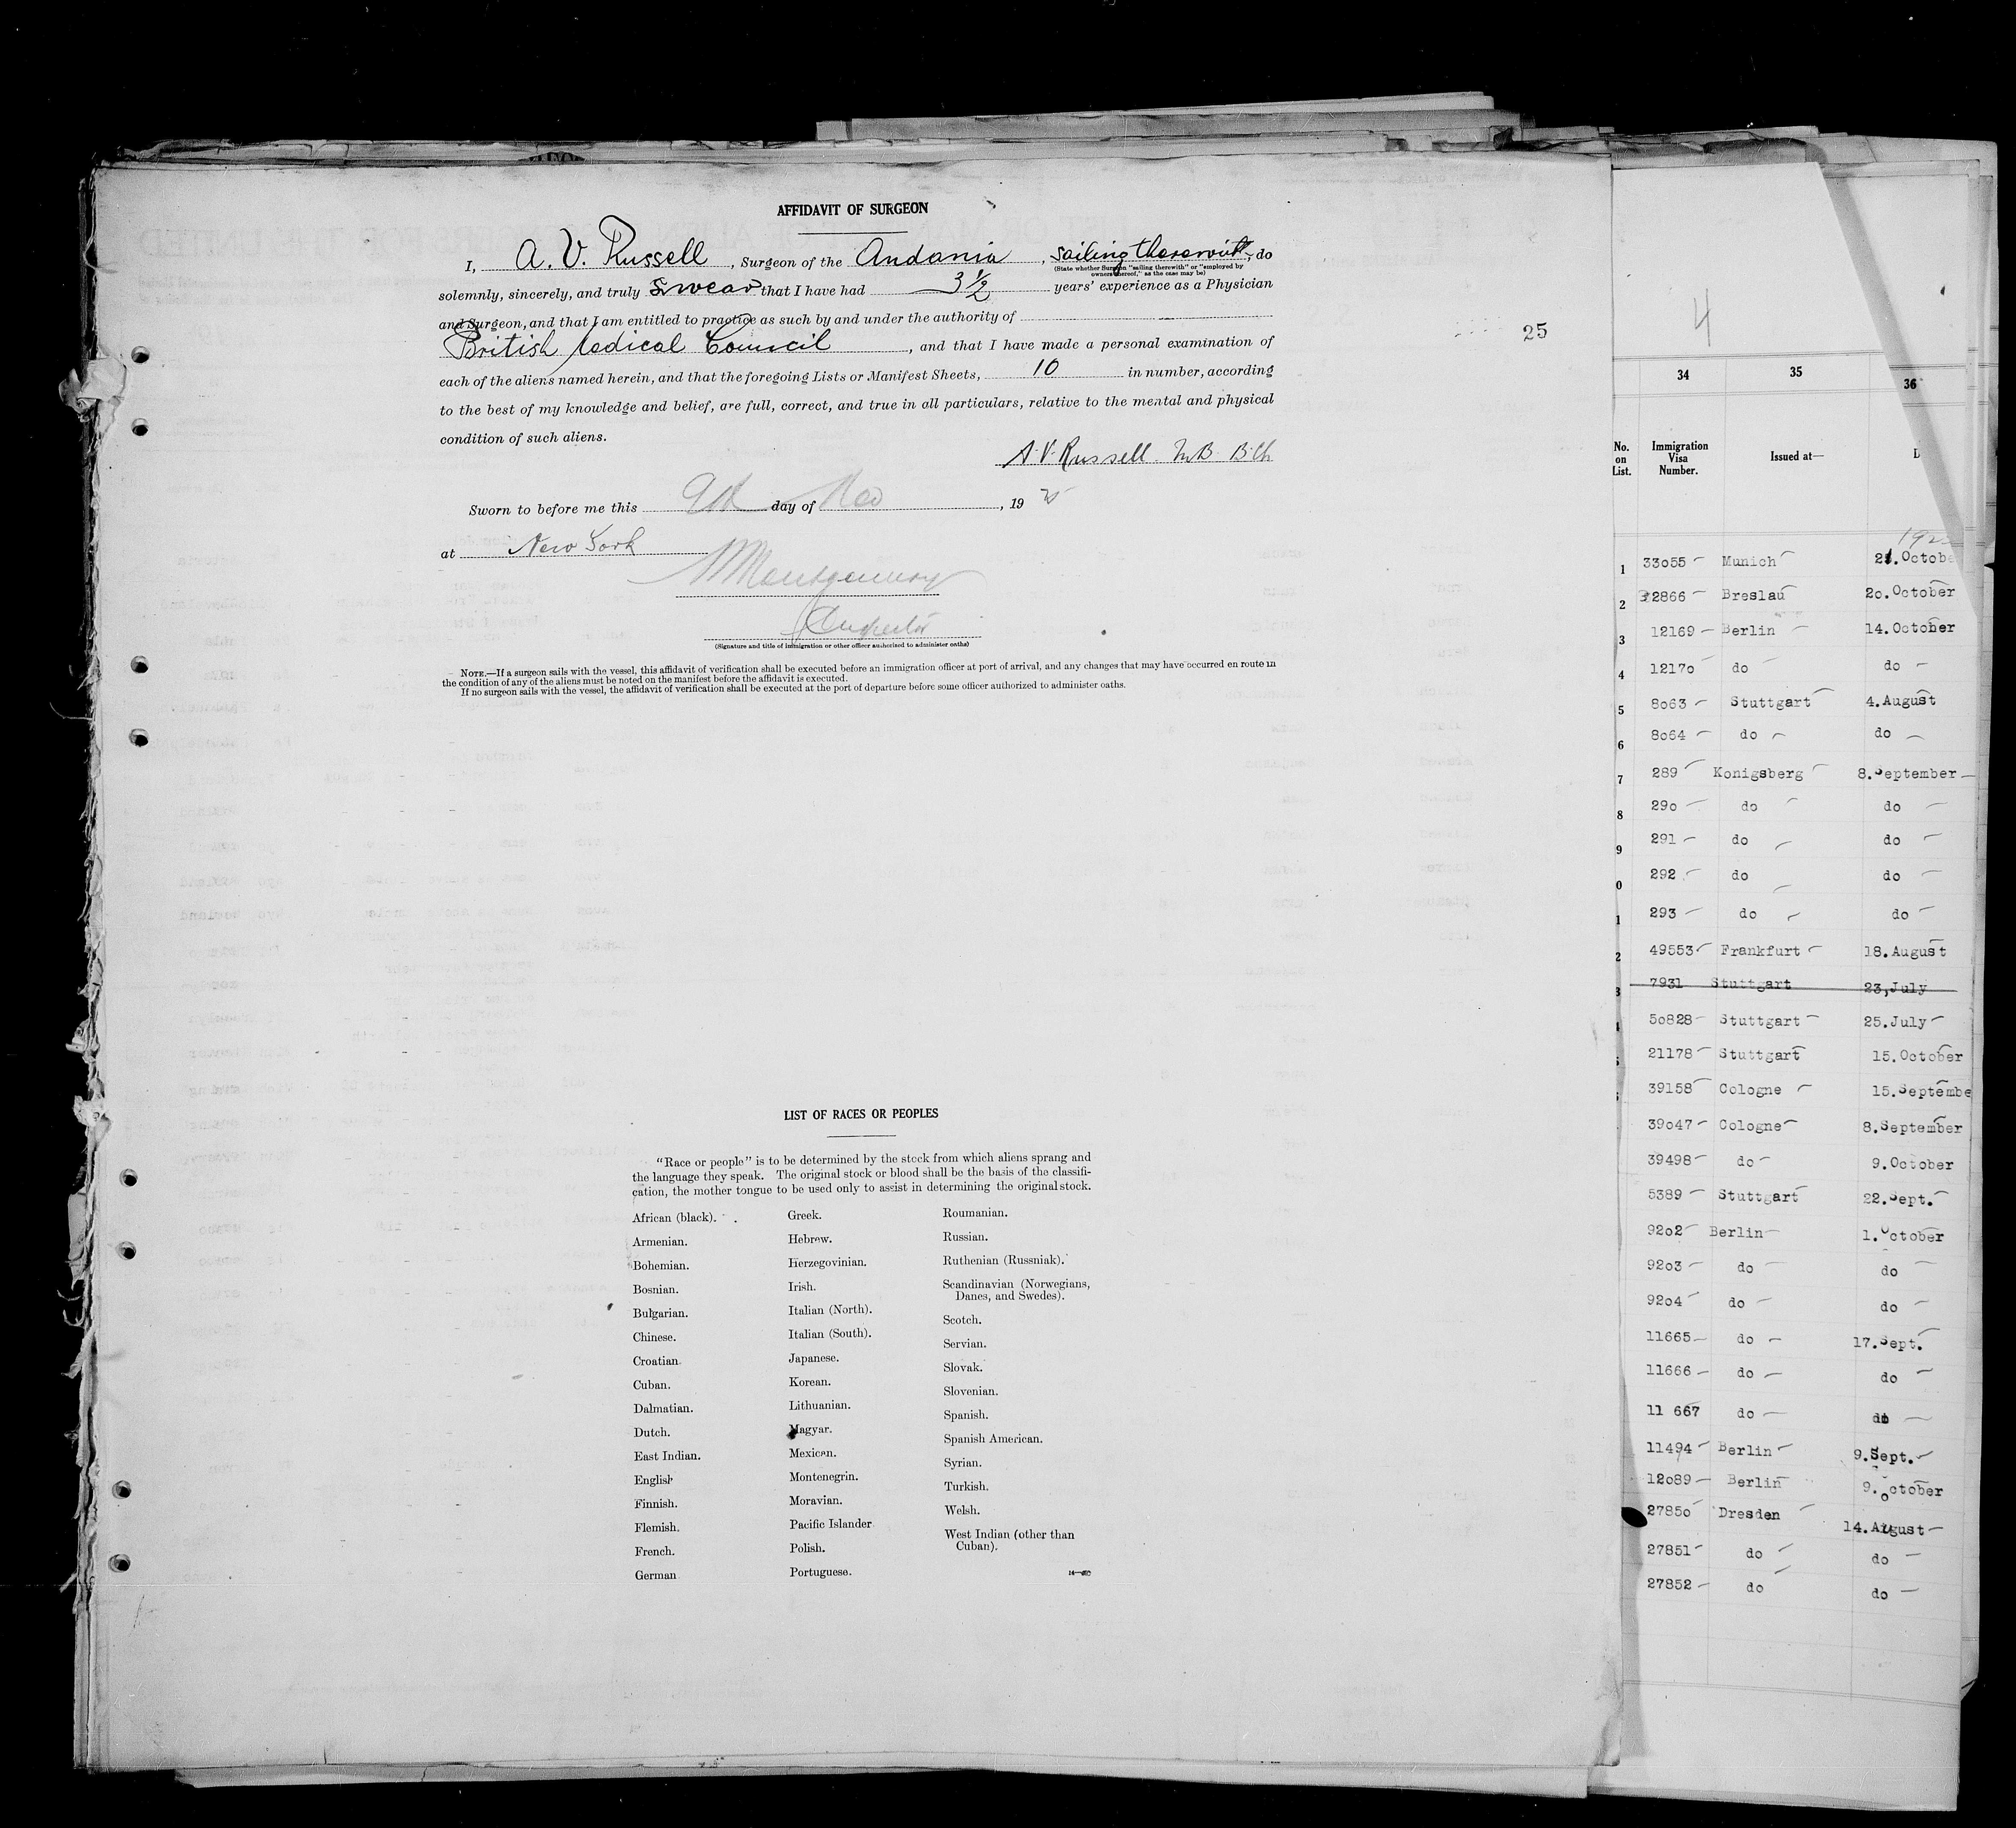 AFFIDAVIT OF SURGEON
I, A. V. Russell, Surgeon of the Andania, sailing therewith, do
(State whether Surgeon "sailing therewith" or "employed by
owners thereof," as the case may be)
solemnly, sincerely, and truly swear that I have had 3 1/2 years' experience as a Physician
and Surgeon, and that I am entitled to practice as such by and under the authority of
British Medical Council, and that I have made a personal examination of
each of the aliens named herein, and that the foregoing Lists or Manifest Sheets, 10 in number, according
to the best of my knowledge and belief, are full, correct, and true in all particulars, relative to the mental and physical
condition of such aliens.
A. V. Russell M.B. B.Ch
Sworn to before me this 9th day of Nov, 19 25
at New York
Montgomery
Inspector
(Signature and title of immigration or other officer authorized to administer oaths)
NOTE.—If a surgeon sails with the vessel, this affidavit of verification shall be executed before an immigration officer at port of arrival, and any changes that may have occurred en route in
the condition of any of the aliens must be noted on the manifest before the affidavit is executed.
If no surgeon sails with the vessel, the affidavit of verification shall be executed at the port of departure before some officer authorized to administer oaths.
25
LIST OF RACES OR PEOPLES
"Race or people" is to be determined by the stock from which aliens sprang and
the language they speak. The original stock or blood shall be the basis of the classifi-
cation, the mother tongue to be used only to assist in determining the original stock.
African (black).
Armenian.
Bohemian.
Bosnian.
Bulgarian.
Chinese.
Croatian.
Cuban.
Dalmatian.
Dutch.
East Indian.
English
Finnish.
Flemish.
French.
German
Greek.
Hebrew.
Herzegovinian.
Irish.
Italian (North).
Italian (South).
Japanese.
Korean.
Lithuanian.
Magyar.
Mexican.
Montenegrin.
Moravian.
Pacific Islander
Polish.
Portuguese.
Roumanian.
Russian.
Ruthenian (Russniak).
Scandinavian (Norwegians,
Danes, and Swedes).
Scotch.
Servian.
Slovak.
Slovenian.
Spanish.
Spanish American.
Syrian.
Turkish.
Welsh.
West Indian (other than
Cuban).
4
34 35 36
No. on List. Immigration Visa Number. Issued at—
1 33055 Munich 21. Octobe
2 32866 Breslau 20. October
3 12169 Berlin 14. October
4 12170 do do
5 8063 Stuttgart 4. August
6 8064 do do
7 289 Konigsberg 8. September
8 290 do do
9 291 do do
0 292 do do
1 293 do do
2 49553 Frankfurt 18. August
3 7931 Stuttgart 23, July
50828 Stuttgart 25. July
21178 Stuttgart 15. October
39158 Cologne 15. Septembe
39047 Cologne 8. September
39498 do 9. October
5389 Stuttgart 22. Sept.
9202 Berlin 1. October
9203 do do
9204 do do
11665 do 17. Sept.
11666 do do
11 667 do do
11494 Berlin 9. Sept.
12089 Berlin 9. October
27850 Dresden 14. August
27851 do do
27852 do do